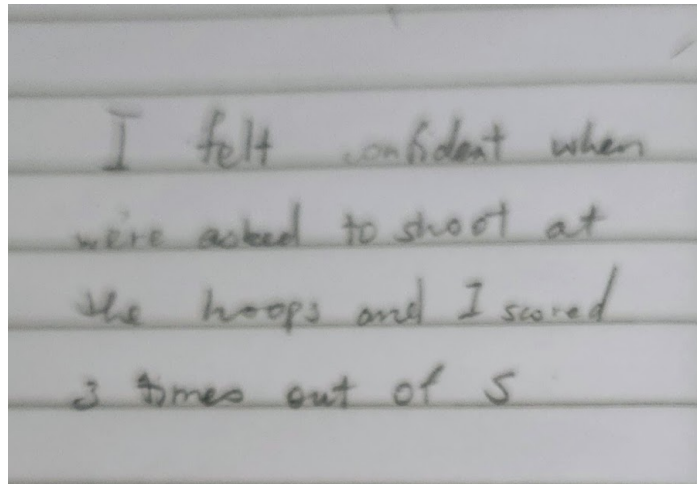 I felt confident when
we're asked to shoot at
the hoops and I scored
3 times out of 5